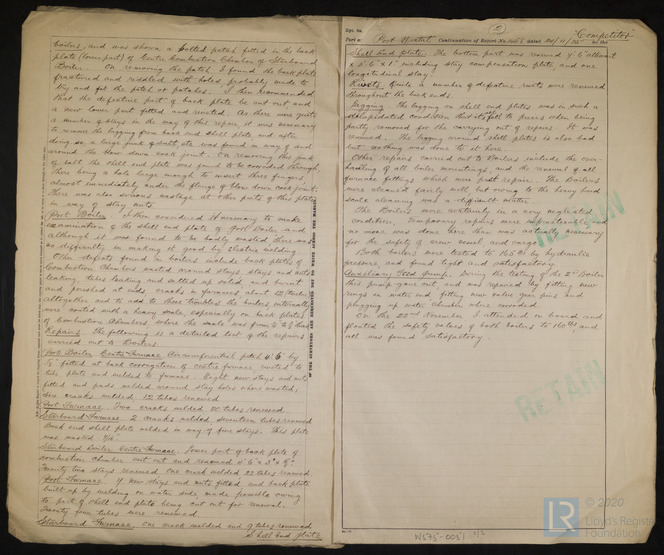 boilers, and was shown a bolted patch fitted in the back
plate (lower part) of Centre Combustion Chamber of Starboard
Boiler. On removing the patch I found the back plate
fractured and riddled with holes probably made to
try and fit the patch or patches. I then recommended
that the defective part of back plate be cut out and
a new lower part fitted and riveted. As there were quite
a number of stays in the way of this repair, it was necessary
to remove the lagging from back end shell plate and after
doing so a large junk of salt, etc was found in way of and
around the blow down cock joint. On removing this junk
of salt the shell end plate was found to be corroded through,
there being a hole large enough to insert three fingers
almost immediately under the flange of blow down cock joint.
There was also serious wastage at other parts of this plate
in way of stay nuts.
Port Boiler. I then considered it necessary to make
examination of the shell end plate of Port Boiler and
although it was found to be badly wasted there was
no difficulty in making it good by electric welding.
Other defects found in boilers include back plates of
Combustion Chambers wasted around stays, stays and nuts
leaking, tubes leaking and salted up solid, and burnt
and pinched at ends, cracks in furnaces about 12 /
altogether and to add to these troubles the boilers internally
were coated with a heavy scale, especially on back plates
of Combustion Chambers where the scale was from
Repairs The following is a detailed list of the repairs
carried out to Boilers.
Port Boiler Centre Furnace Circumferential patch 4' 6" by
fitted at back corrugation of centre furnace riveted to
tube plate and welded to furnace. Eight new stays and nuts
fitted and pads welded around stay holes where wasted,
six cracks welded, 12 tubes renewed.
Port Furnace. Two cracks welded, 20 tubes renewed.
Starboard Furnace 2 cracks welded, seventeen tubes renewed
Back end shell plate welded in way of five stays. This plate
was wasted
Starboard Boiler Centre Furnace. Lower part of back plate of
combustion chamber cut out and renewed 4' 6" x 3' x
Twenty two stays renewed, one crack welded 22 tubes renewed.
Port Furnace. 4 new stays and nuts fitted and back plate
built up by welding on water side, made possible owing
to part of shell end plate being cut out for renewal.
Twenty four tubes were renewed.
Starboard Furnace, one crack welded and 9 tubes renewed.
Shell End Plate
(2)
Rpt. 9a.
Port of Port Hastst Continuation of Report No. dated 24/11/ on the Competitor
Shell End Plate. The bottom part was renewed 9' 6" athwart
x 3' 6" x 1" including stay compensation plate and one
longitudinal stay.
Rivets Quite a number of defective rivets were renewed
throughout the back ends.
Lagging The lagging on shell end plates was in such a
dilapidated condition that it fell to pieces when being
partly removed for the carrying out of repairs. It was
renewed. The lagging around shell plates is also bad
but nothing was done to it here.
Other repairs carried out to Boilers include the over-
hauling of all boiler mountings, and the renewal of all
furnace fittings which were past repair. The Boilers
were cleaned fairly well, but owing to the heavy hard
scale cleaning was a difficult matter.
The Boilers were certainly in a very neglected
condition. Temporary repairs were impracticable and
no more was done here than was actually necessary
for the safety of crew, vessel, and cargo.
Both boilers were tested to 165 lbs by hydraulic
pressure and found tight and satisfactory.
Auxiliary Feed Pump. During the testing of the 2nd Boiler
this pump gave out, and was repaired by fitting new
rings in water end fitting new valve gear pins and
plugging up water chamber where corroded.
On the 22nd November I attended on board and
floated the safety valves of both boilers to 160 lbs and
all was found satisfactory.
RETAIN
RETAIN
W575-0051 1/2
© 2020
Lloyd's Register
Foundation